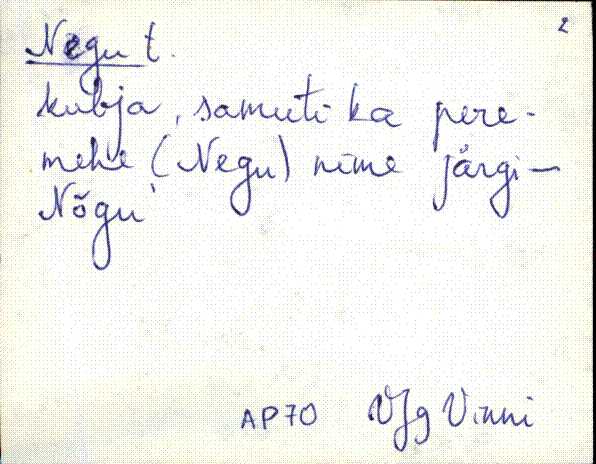 2
Negu t.
kubja, samuti ka pere-
mehe (Negu) nime järgi –
Nõgu
AP70 VJg Vinni